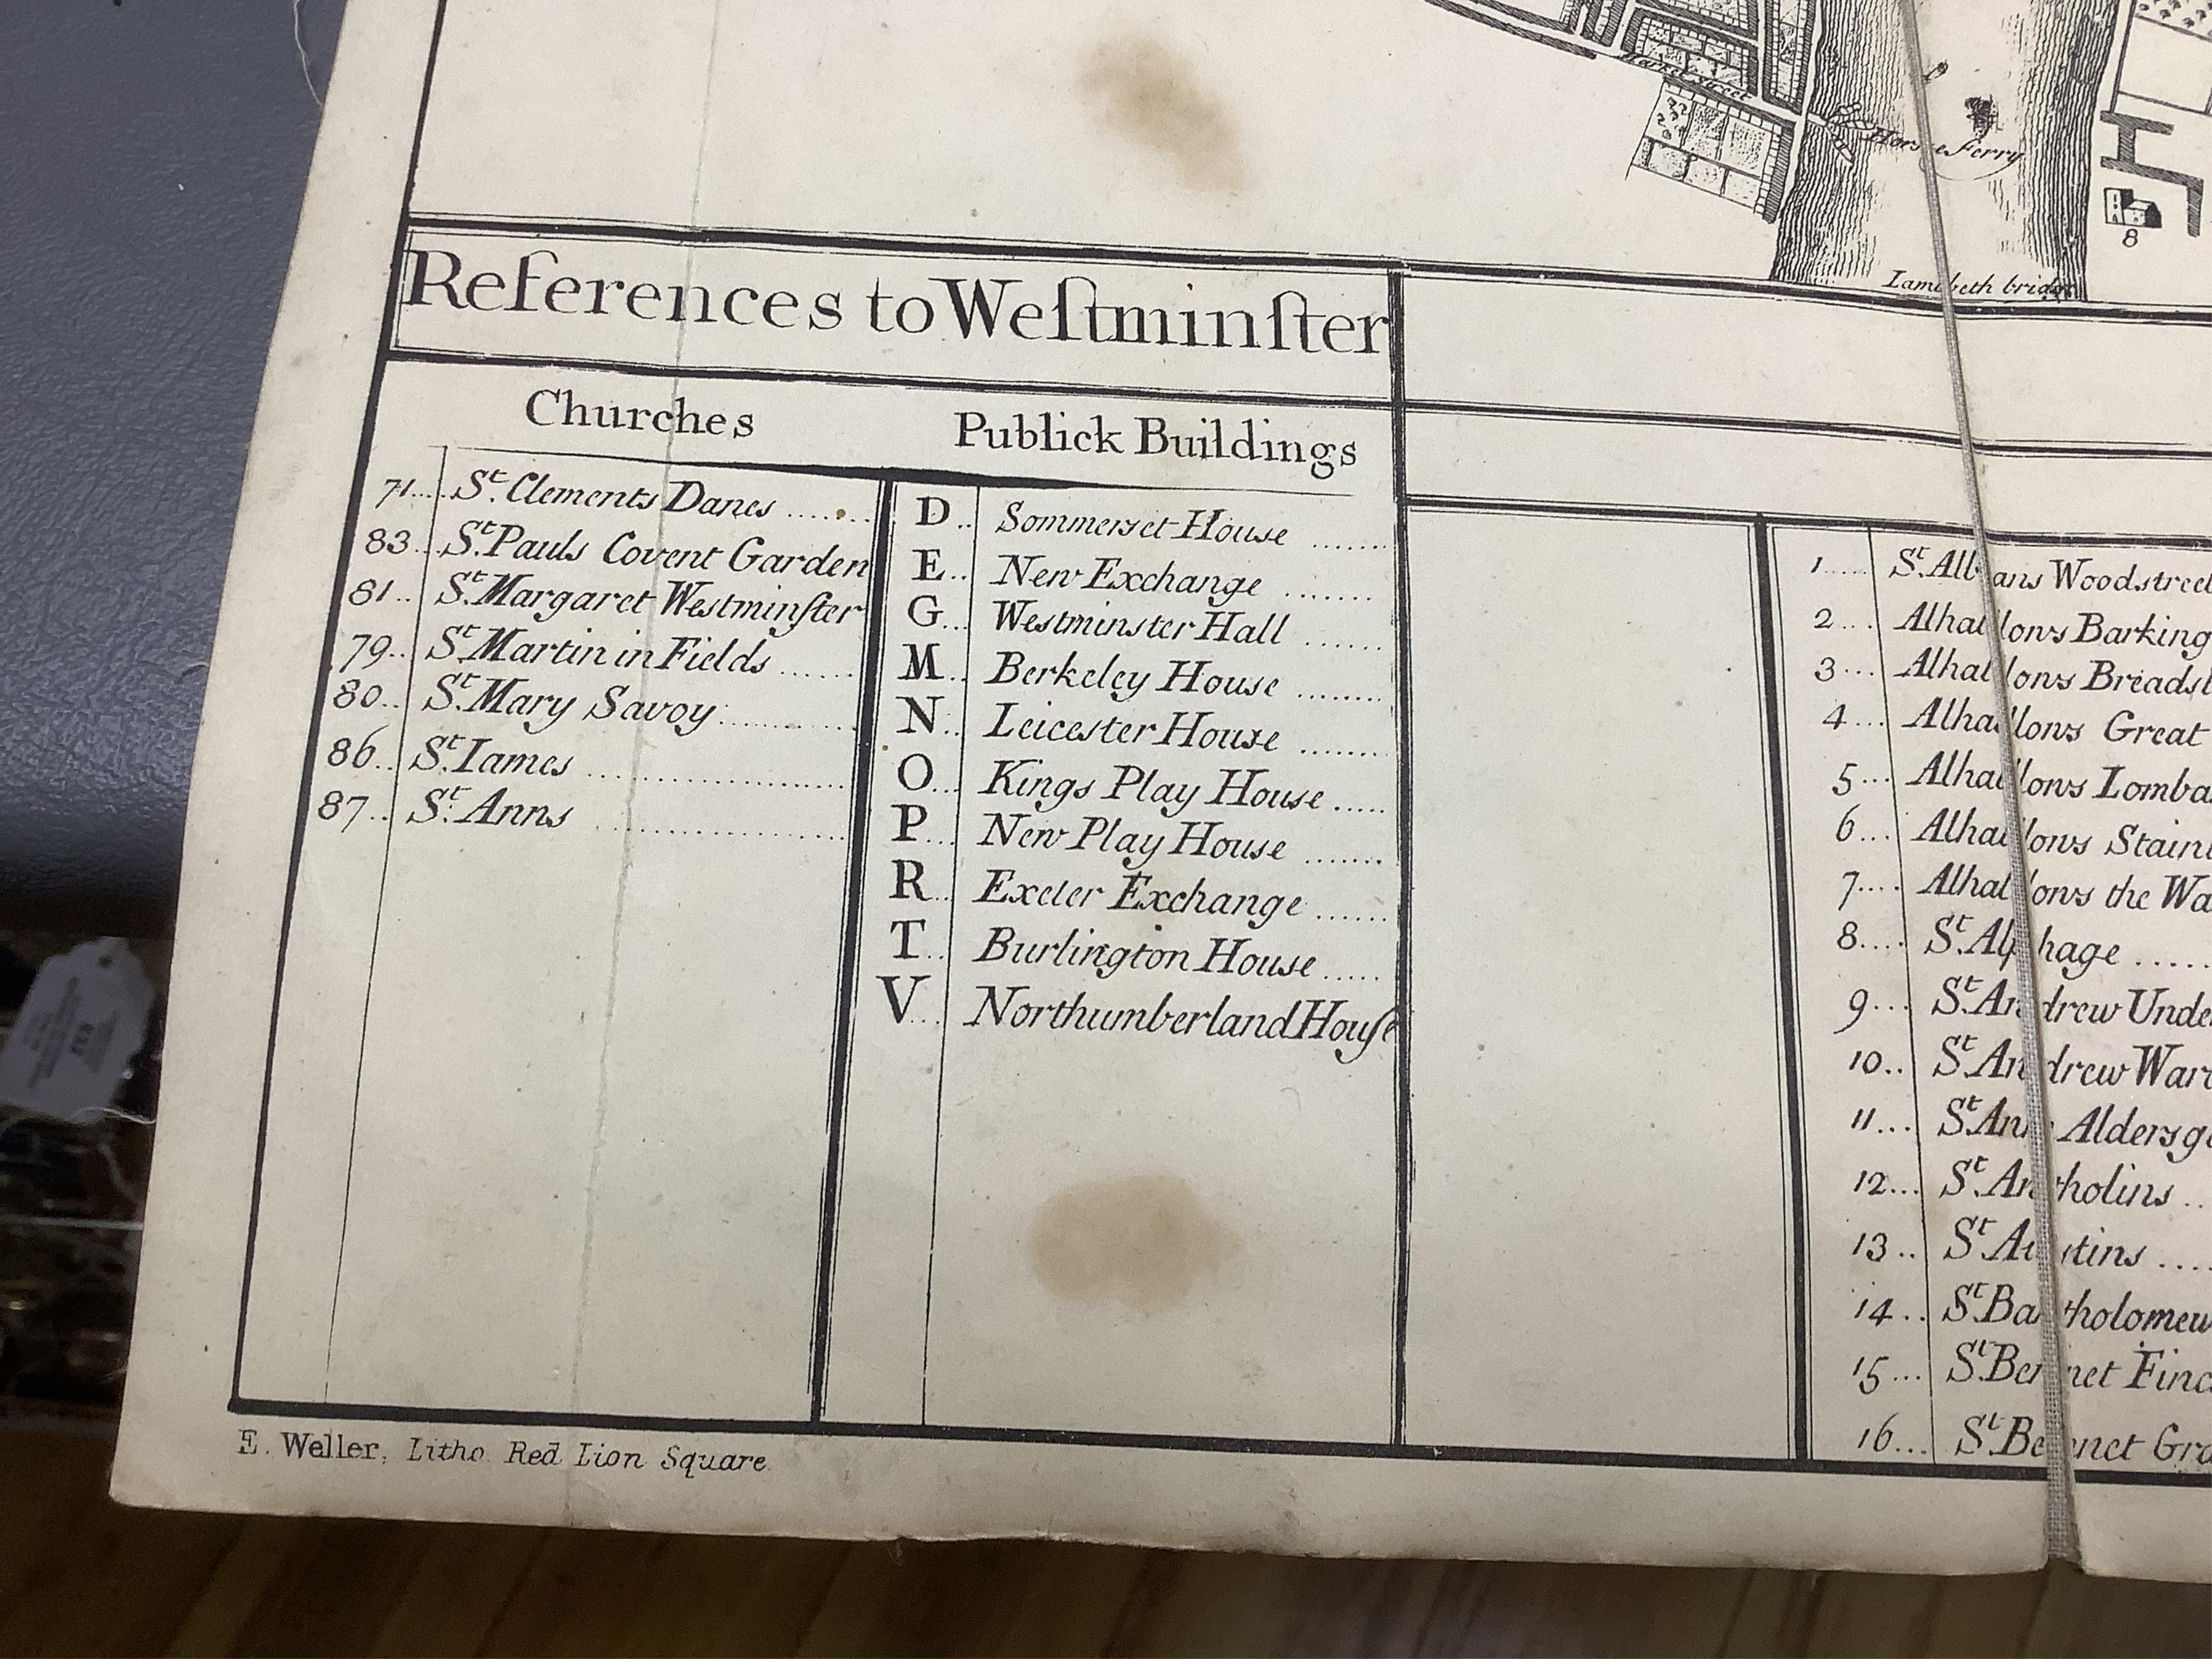 Market Street
Horse ferry
8
Lambeth bridge
References to Weſtminſter
Churches
71.... St. Clements Danes .......
83... St. Pauls Covent Garden
81.. St. Margaret Westminſter
79.. St. Martin in Fields ......
80.. St. Mary Savoy ..........
86.. St. Iames ................
87.. St. Anns ................
Publick Buildings
D.. Sommerset House .......
E.. New Exchange .......
G... Westminster Hall ......
M.. Berkeley House ........
N.. Leicester House ........
O... Kings Play House .....
P... New Play House .......
R.. Exeter Exchange .......
T.. Burlington House .....
V... Northumberland Houſe
1..... St. Albans Woodstreet
2.... Alhallows Barking
3... Alhallows Breadst
4.... Alhallows Great
5... Alhallows Lomba
6... Alhallows Stain
7.... Alhallows the Wa
8.... St. Alphage .....
9... St. Andrew Unde
10.. St. Andrew War
11... St. Ann Aldersga
12... St. Antholins ..
13.. St. Austins ....
14.. St. Bartholomew
15... St. Bennet Finc
16... St. Bennet Gra
E. Weller, Litho. Red Lion Square